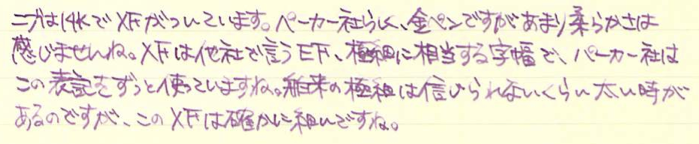 ニブは14KでXFがついています。ペーカー社らしく、金ペンですがあまり柔らかさは
感じませんね。XFは他社で言うEF、極細に相当する字幅で、パーカー社は
この表記をずっと使っていますね。舶来の極細は信じられないくらい太い時が
あるのですが、このXFは確かに細いですね。